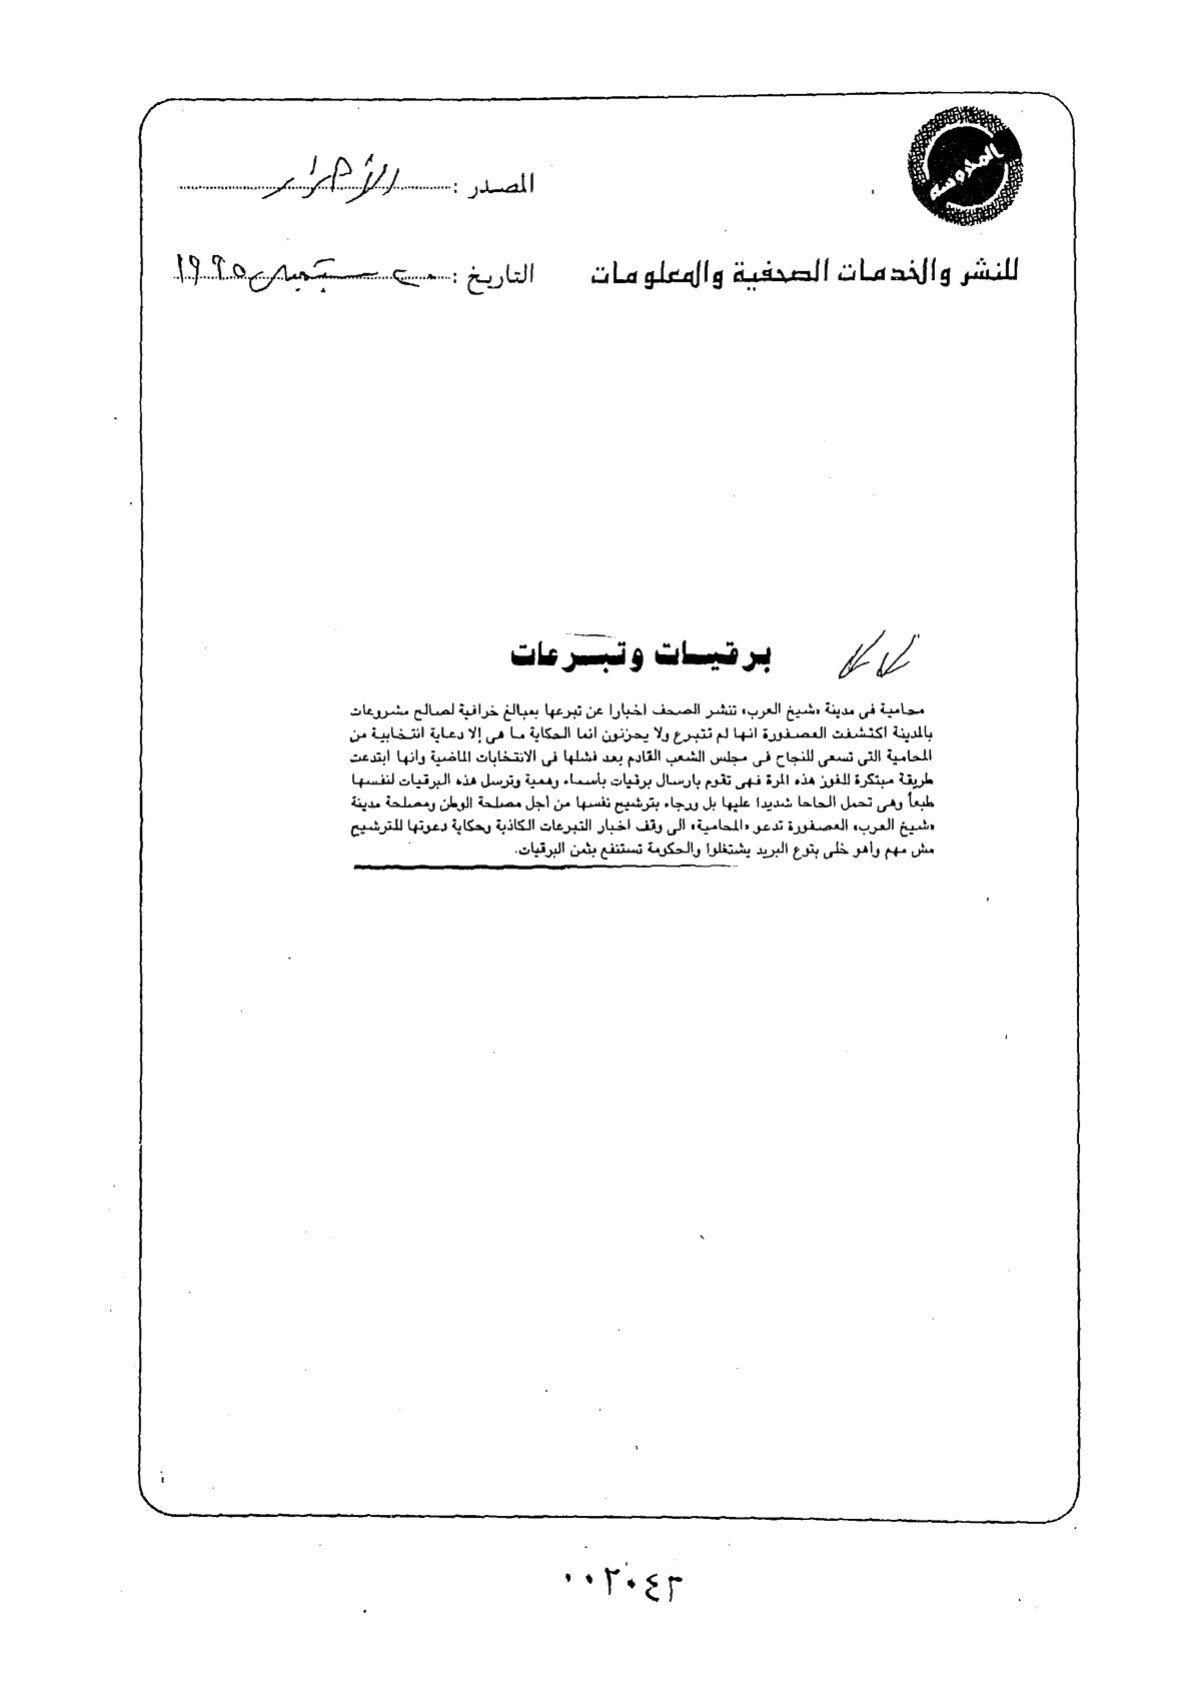 المحروسة
المصدر : الأحرار
للنشر والخدمات الصحفية والمعلومات
التاريخ : سبتمبر ١٩٩٥
برقيات وتبرعات
محامية فى مدينة «شيخ العرب» تنشر الصحف اخبارا عن تبرعها بمبالغ خرافية لصالح مشروعات
بالمدينة اكتشفت العصفورة انها لم تتبرع ولا يحزنون انما الحكاية ما هى إلا دعاية انتخابية من
المحامية التى تسعى للنجاح فى مجلس الشعب القادم بعد فشلها فى الانتخابات الماضية وانها ابتدعت
طريقة مبتكرة للفوز هذه المرة فهى تقوم بارسال برقيات بأسماء وهمية وترسل هذه البرقيات لنفسها
طبعاً وهى تحمل الحاحا شديدا عليها بل ورجاء بترشيح نفسها من أجل مصلحة الوطن ومصلحة مدينة
«شيخ العرب» العصفورة تدعو «المحامية» الى وقف اخبار التبرعات الكاذبة وحكاية دعوتها للترشيح
مش مهم وأهو خلى بتوع البريد يشتغلوا والحكومة تستنفع بثمن البرقيات.
٠٠٢٠٤٣